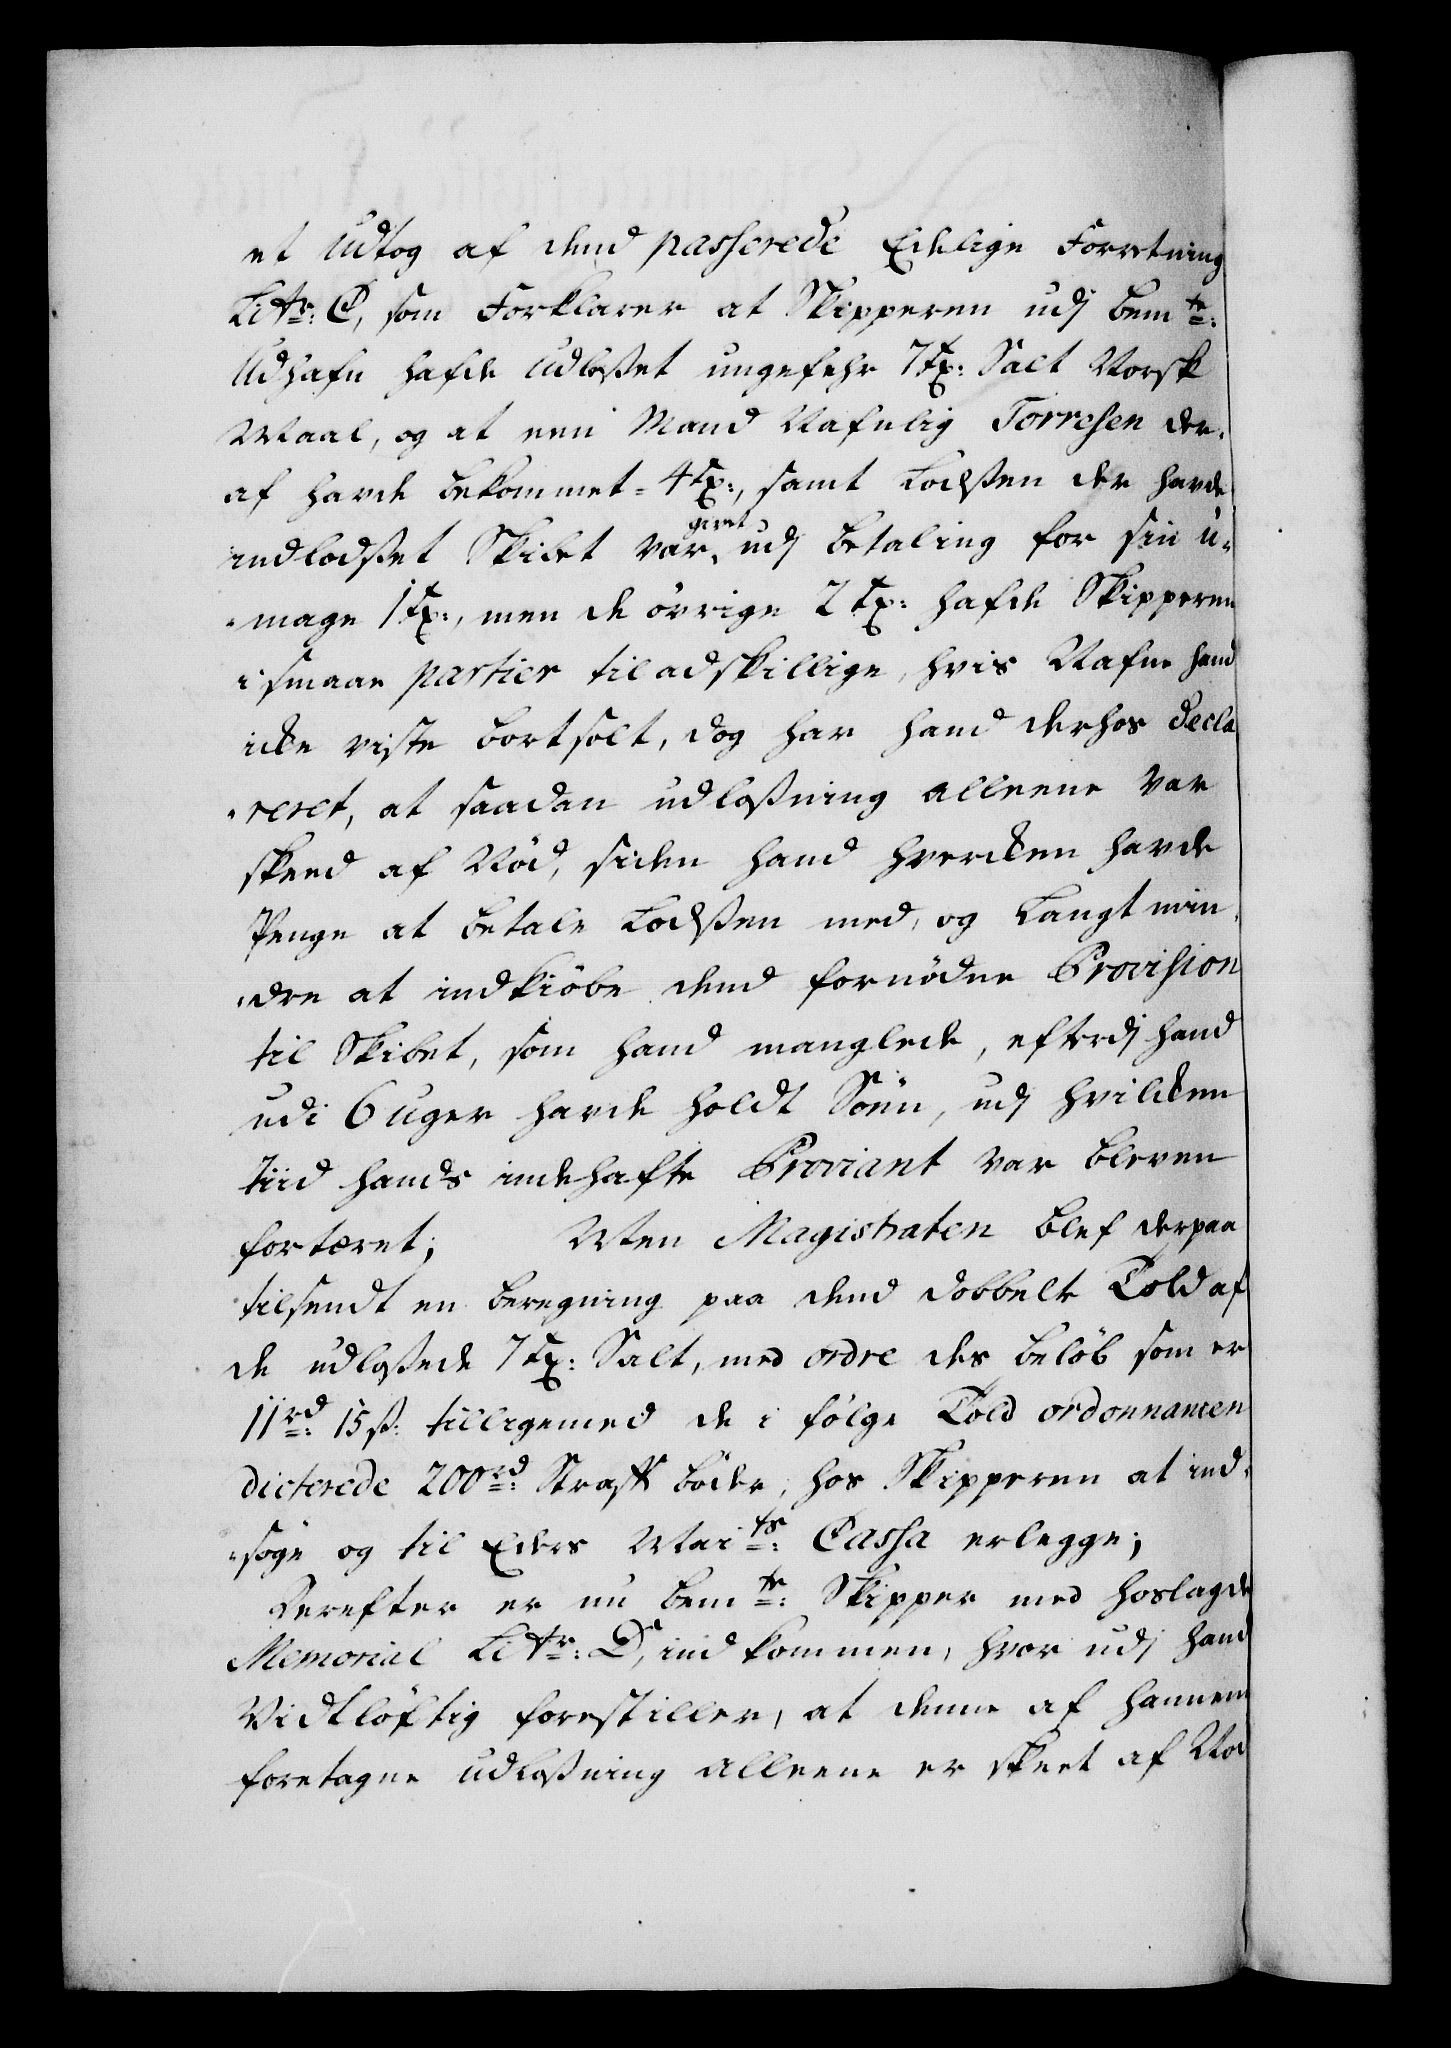 et Udtog af dend passerede Eedelige Forretning
Litr: C, som Forklarer at Skipperen udj bemte:
Udhafn hafde Udlosset ungefehr 7 Tr: Salt Norsk
Maal, og at een Mand Nafnlig Torresen der-
af havde bekommet 4 Tr:, samt Lodssen der havde
indlodset Skibet var givet udj betaling for sin u-
mage 1 Tr:, men de øvrige 2 Tr: hafde Skipperen
i smaae partier til adskillige, hvis Nafne hand
icke viste bortsolt, dog har hand derhos decla
reret, at saadan udlosning alleene var
skeed af Nød, siden hand hvercken havde
Penge at betale Lodssen med, og Langt min-
dre at indkiøbe dend fornødne Provision
til Skibet, som hand manglede, efterdj hand
udi 6 uger havde holdt Søen, udj hvilcken
tiid hands indehafte Proviant var bleven
fortæret; Men Magistraten blef derpaa
tilsendt en beregning paa dend dobbelte Told af
de udlossede 7 Tr: Salt, med ordre des beløb som er
11 rd: 15 ß: tilligemed de i følge Told ordonnancen
dicterede 200 rd: Straff bøder, hos Skipperen at ind-
søge og til Eders Maits: Cassa erlegge;
Derefter er nu bemte: Skipper med hoslagde
Memorial Litr: D, ind kommen, hvor udj hand
Vidtløftig forestiller, at denne af hannem
foretagne udlosning alleene er skeet af Nød